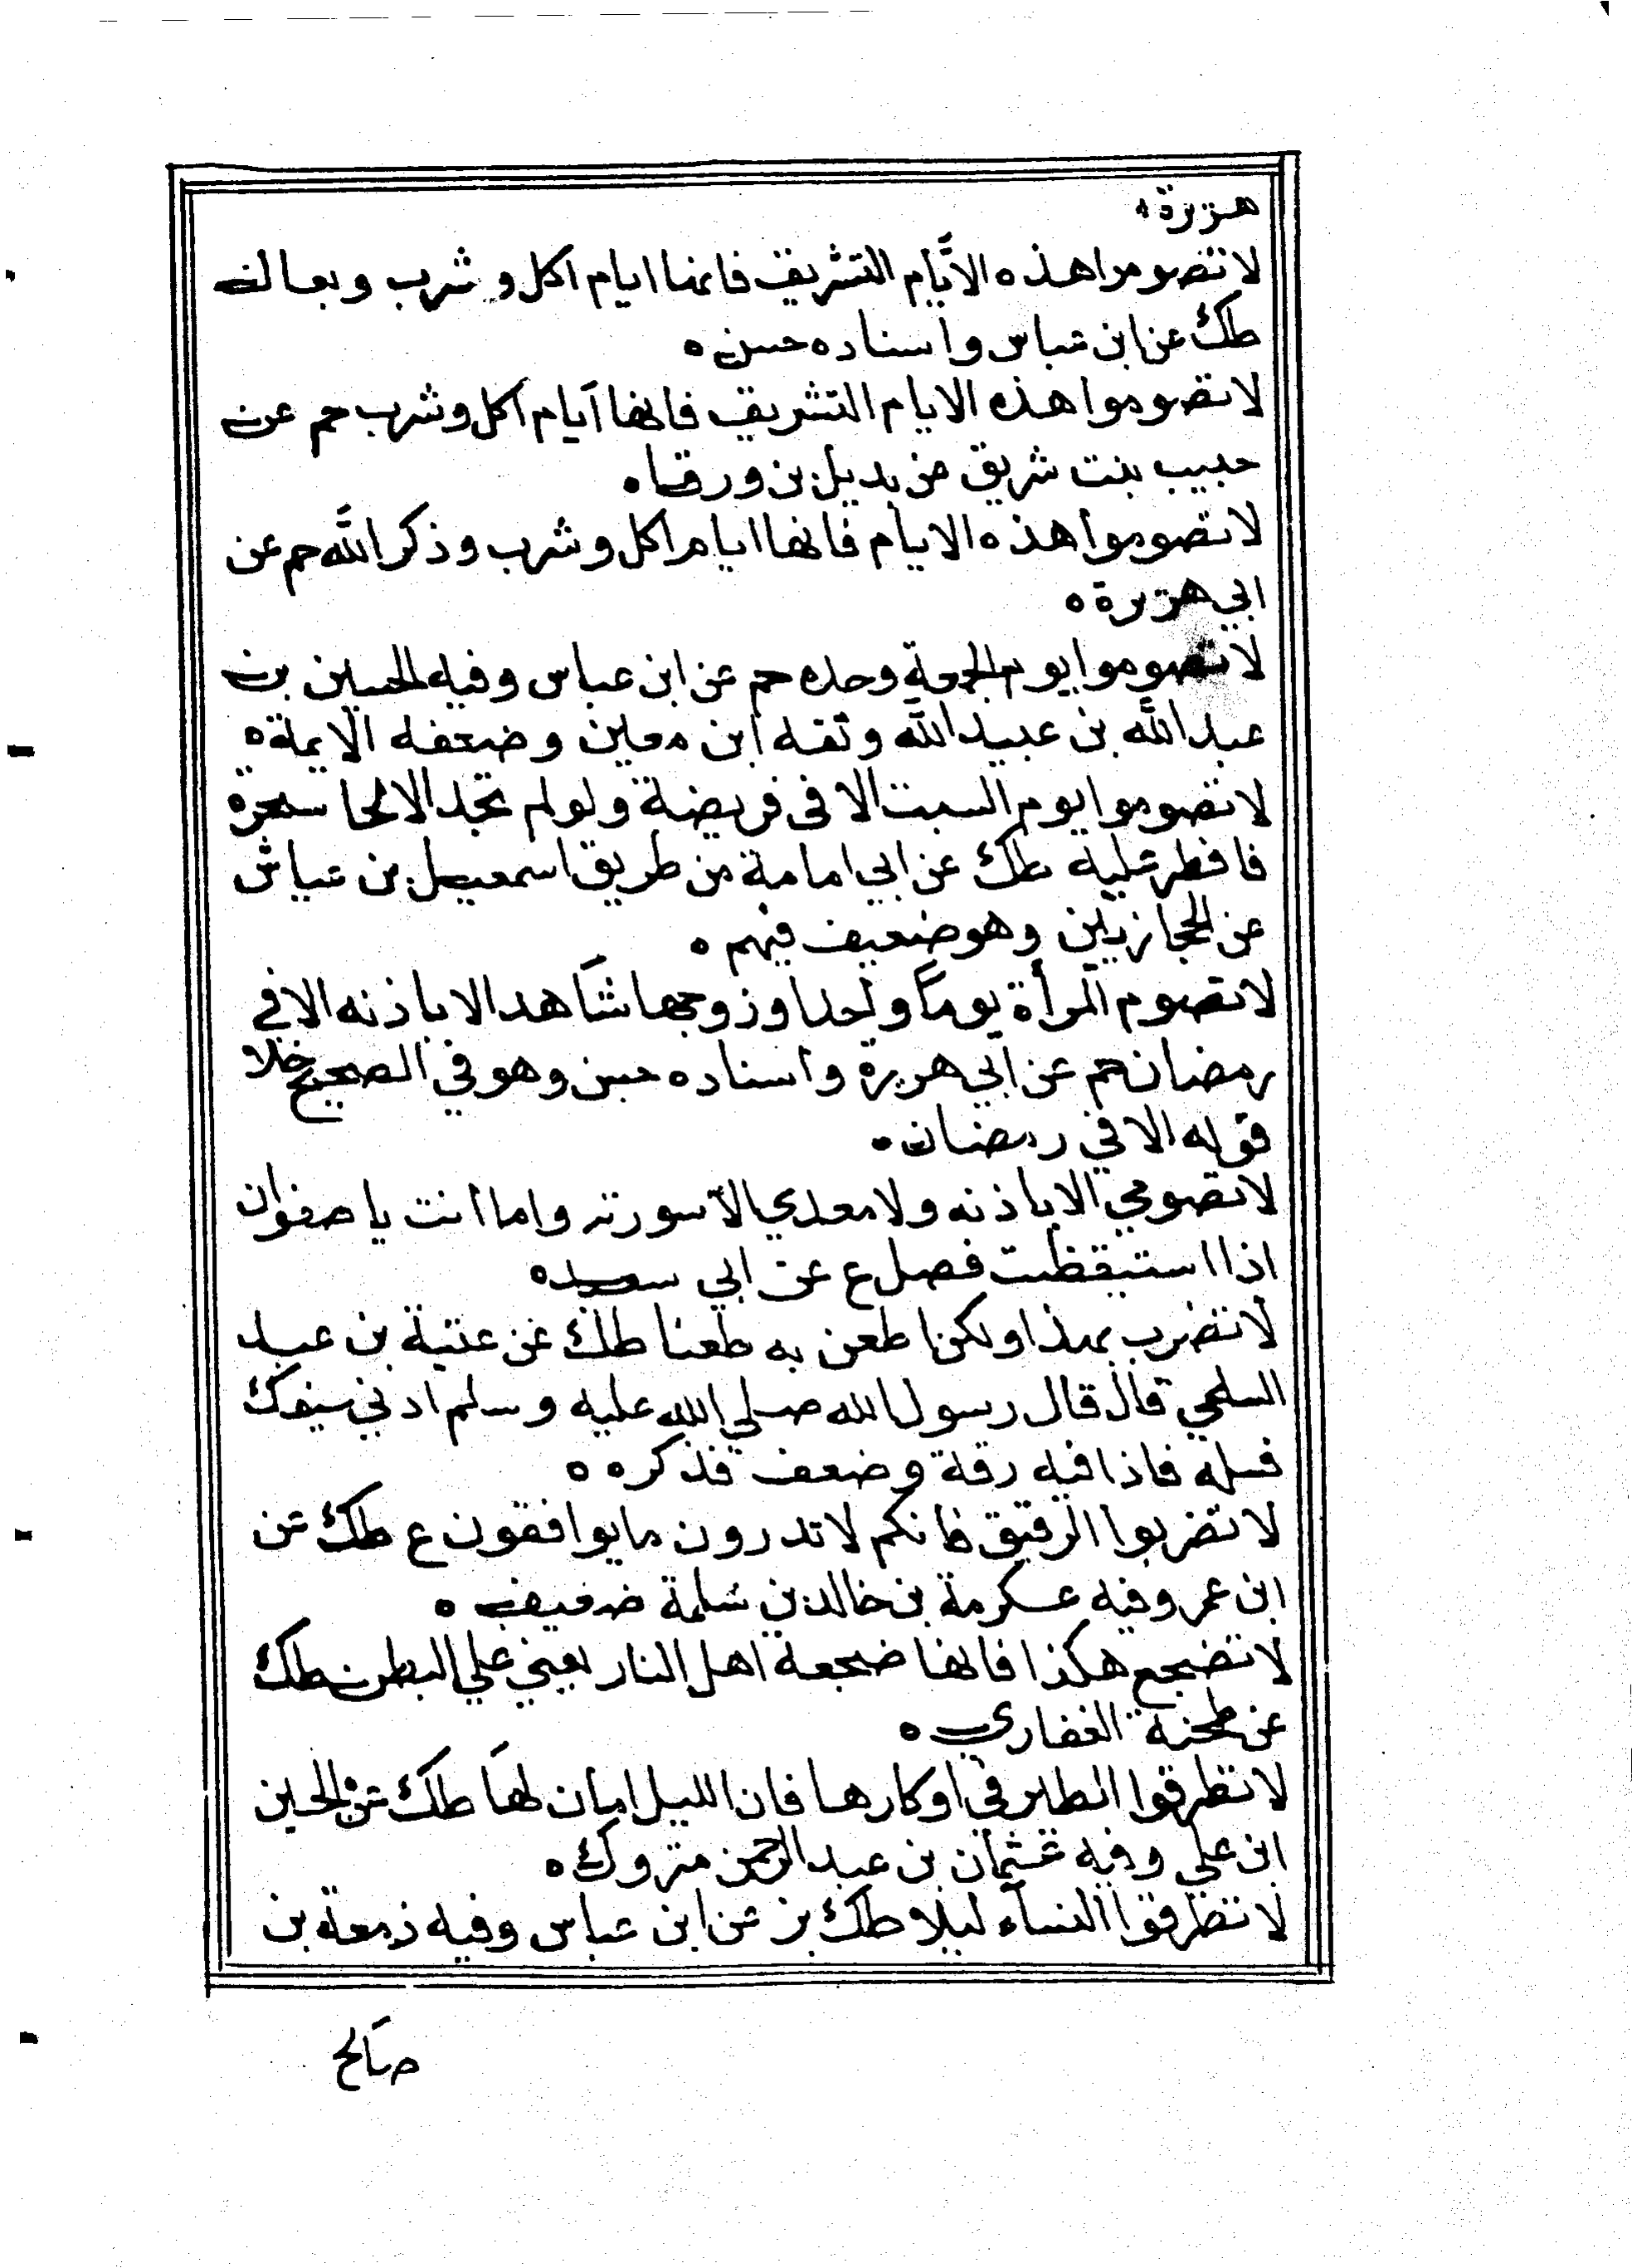 هريرة ه
لا تصوموا هذه الايام التشريق فانها ايام اكل وشرب وبعال
طك عن ابن عباس واسناده حسن ه
لا تصوموا هذه الايام التشريق فانها ايام اكل وشرب حم عن
حبيب بنت شريق عن بديل بن ورقاه
لا تصوموا هذه الايام فانها ايام اكل وشرب وذكر الله حم عن
ابي هريرة ه
لا تصوموا يوم الجمعة وحده حم عن ابن عباس وفيه الحسين بن
عبد الله بن عبيد الله وثقه ابن معين وضعفه الايمة ه
لا تصوموا يوم السبت الا في فريضة ولو لم تجد الا لحا سمرة
فافطر عليه طك عن ابي امامة من طريق اسمعيل بن عياش
عن الحجازيين وهو ضعيف فيهم ه
لا تصوم المرأة يوما واحدا وزوجها شاهد الا باذنه الا في
رمضان حم عن ابي هريرة واسناده حسن وهو في الصحيح خلا
قوله الا في رمضان ه
لا تصومي الا باذنه ولا معدي الا سورته واما انت يا صفوان
اذا استيقظت فصل ع عن ابي سعيد ه
لا تضرب بهذا ولكن اطعن به طعنا طك عن عتبة بن عبد
السلمي قال قال رسول الله صلي الله عليه وسلم ادني سيفك
فسله فاذا فيه رقة وضعف فذكره ه
لا تضربوا الرقيق فانكم لا تدرون ما يوافقون ع طك عن
ابن عمر وفيه عكرمة بن خالد بن سلمة ضعيف ه
لا تضجع هكذا فانها ضجعة اهل النار يعني علي البطن طك
عن طخنة الغفاري ه
لا تطرقوا الطير في اوكارها فان الليل امان لها طك عن الحسين
ابن علي وفيه عثمان بن عبد الرحمن متروك ه
لا تطرقوا النساء ليلا طك بز عن ابن عباس وفيه زمعة بن
صالح